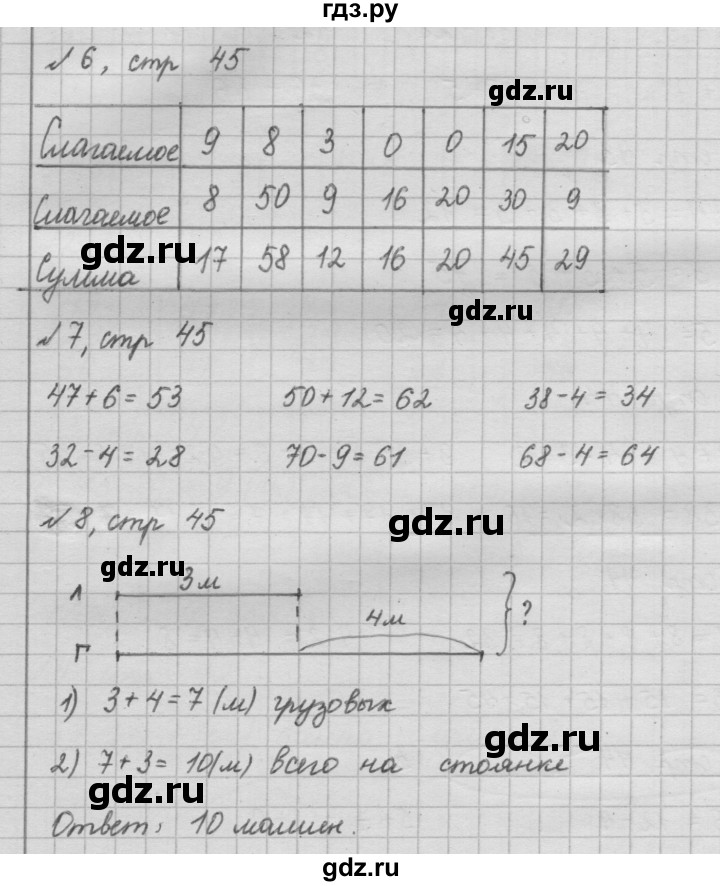 гдз.ру
№ 6, стр 45
gdz.ru
Слагаемое 9 8 3 0 0 15 20
Слагаемое 8 50 9 16 20 30 9
gdz.ru
Сумма 17 58 12 16 20 45 29
gdz.ru
№ 7, стр 45
47+6=53 50+12=62 38-4=34
32-4=28 70-9=61 68-4=64
№ 8, стр 45
gdz.ru
gdz.ru
3м
Л
4м
?
Г
1) 3+4=7 (м) грузовых
gdz.ru
2) 7+3=10(м) всего на стоянке
gdz.ru
Ответ: 10 машин.
gdz.ru